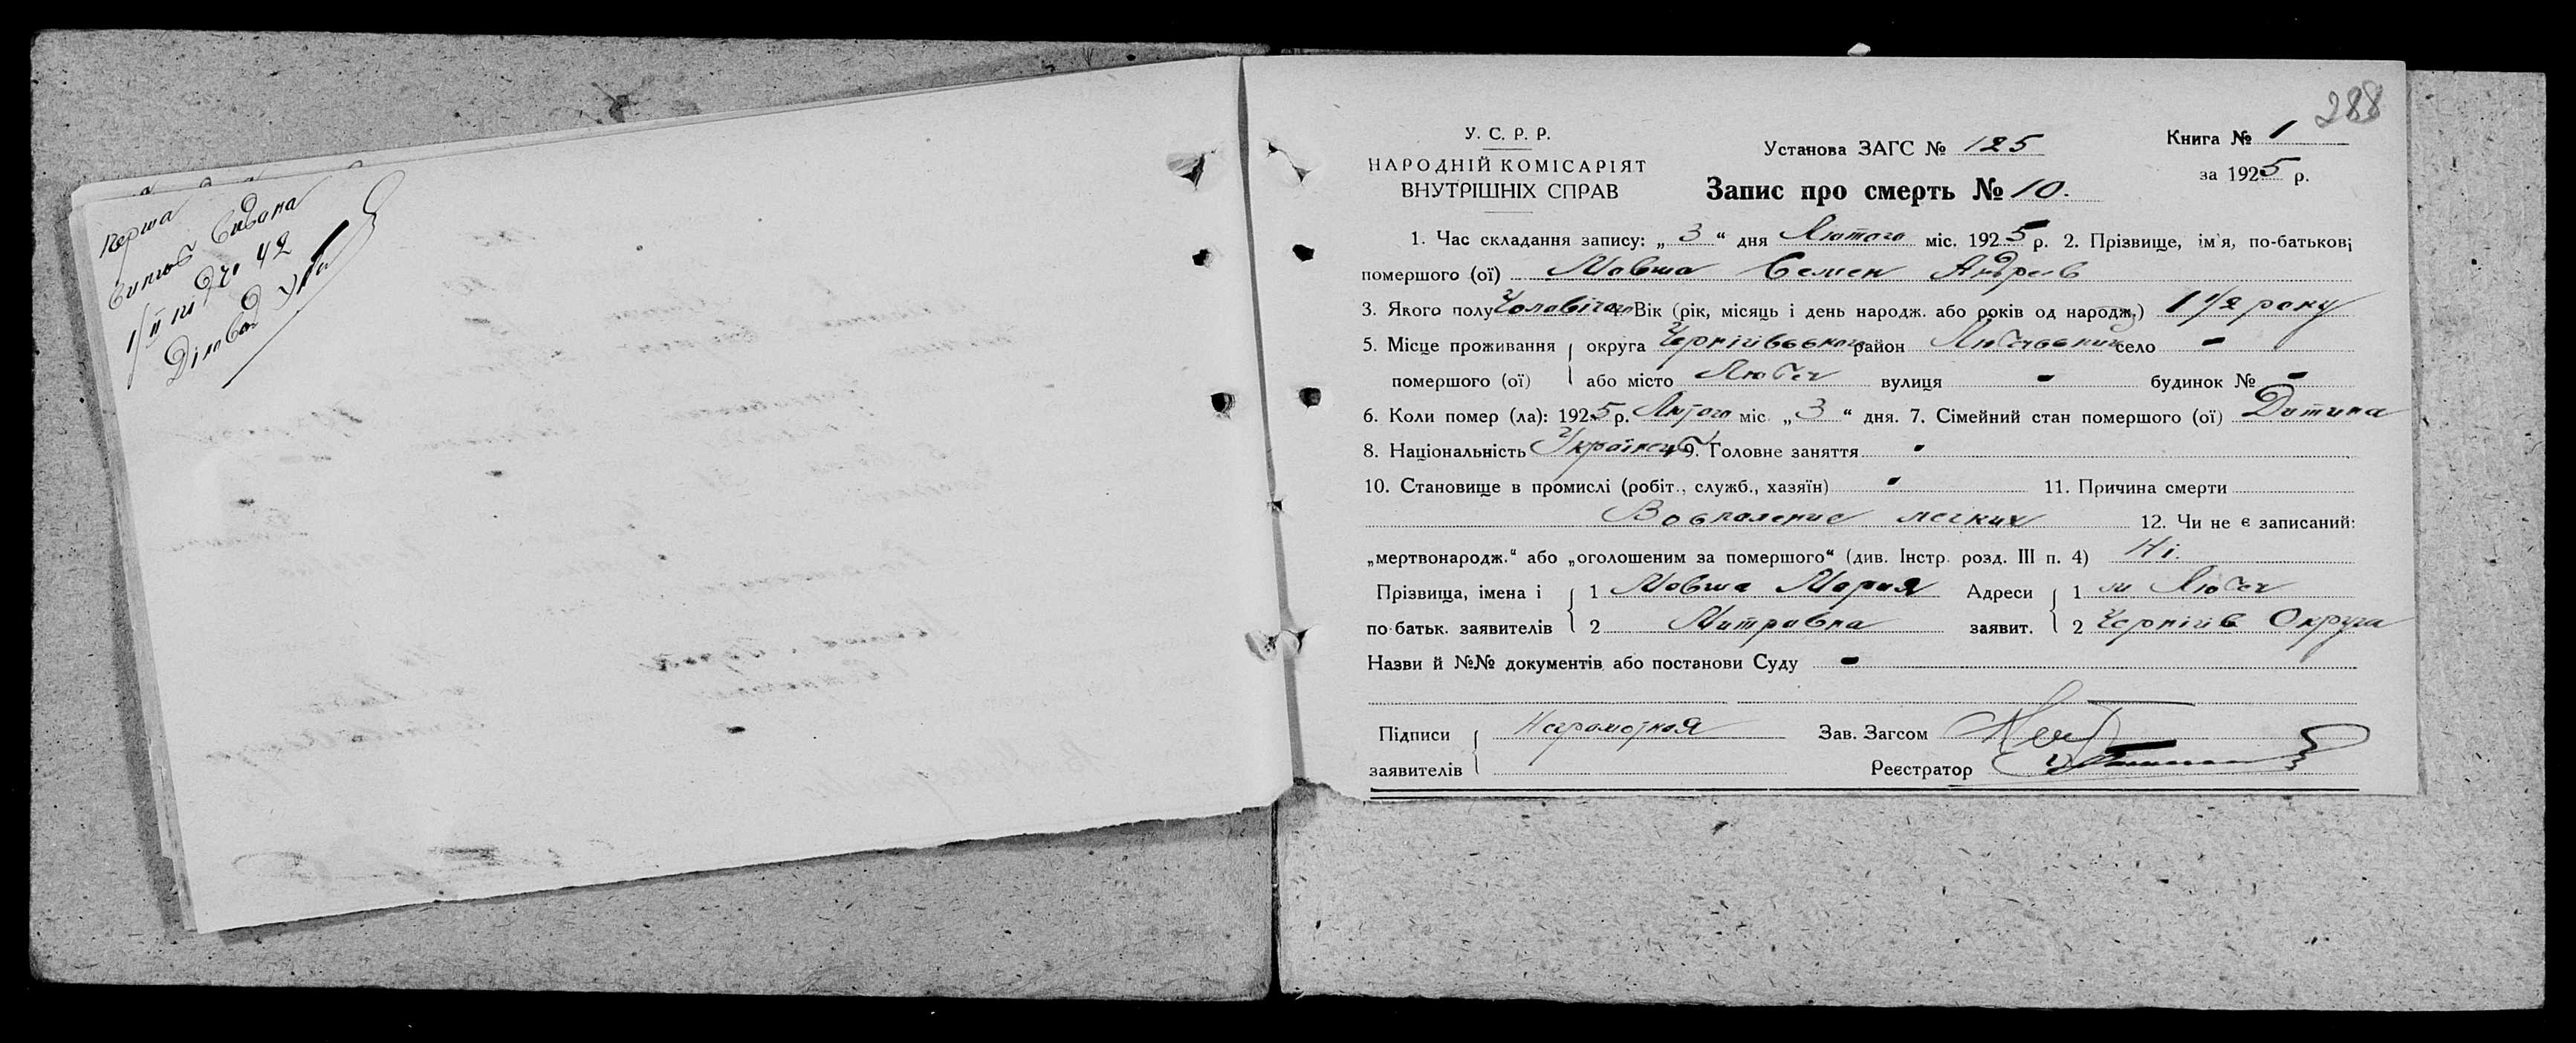 перша
випись видана
1/II
42
Діловод
288
У. С. Р. Р.
НАРОДНІЙ КОМІСАРІЯТ
ВНУТРІШНІХ СПРАВ
Установа ЗАГС № 125
Книга № 1
за 1925 р.
Запис про смерть № 10.
1. Час складання запису: „3“ дня Лютого міс. 1925 р. 2. Прізвище, ім'я, по-батькові
помершого (ої) Мовша Семен Андреев
3. Якого полу Чоловічаго 4. Вік (рік, місяць і день народж. або років од народж.) 1 1/2 року
5. Місце проживання округа Чернігівського район село -
помершого (ої) або місто Любеч вулиця - будинок № -
6. Коли помер (ла): 1925 р. Лютого міс. „3“ дня. 7. Сімейний стан помершого (ої) Дитина
8. Національність Українець 9. Головне заняття -
10. Становище в промислі (робіт., служб., хазяїн) - 11. Причина смерти
Воспаление легких 12. Чи не є записаний:
„мертвонародж.“ або „оголошеним за помершого“ (див. Інстр. розд. III п. 4) Ні.
Прізвища, імена і 1 Мовша Мария Адреси 1 м Любеч
по батьк. заявителів 2 Митровна заявит. 2 Чернігів Округа
Назви й №№ документів або постанови Суду -
Підписи Неграмотная Зав. Загсом
заявителів Реєстратор